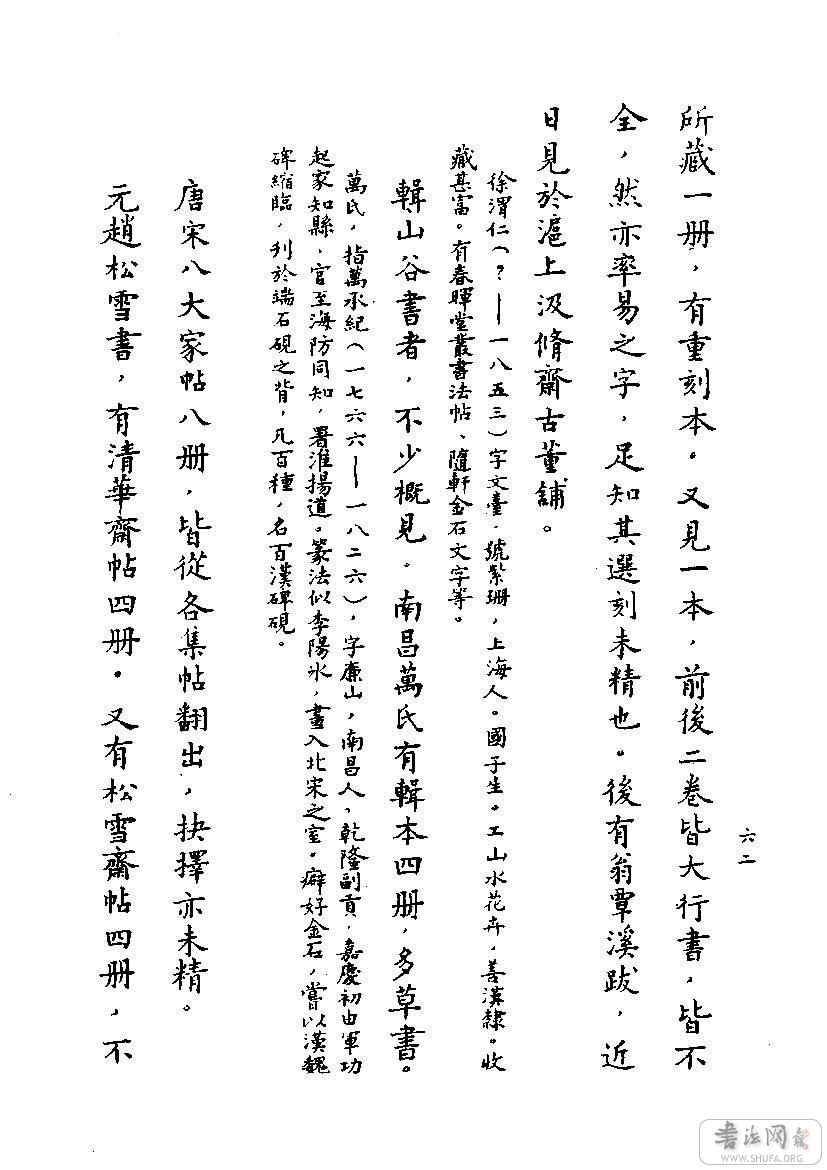 所藏一册，有重刻本。又見一本，前後二卷皆大行書，皆不
全，然亦率易之字，足知其選刻未精也。後有翁覃溪跋，近
日見於滬上汲脩齋古董舖。
徐渭仁（？——一八五三）字文臺，號紫珊，上海人。國子生。工山水花卉，善漢隸。收
藏甚富。有春暉堂叢書法帖、隨軒金石文字等。
輯山谷書者，不少概見。南昌萬氏有輯本四册，多草書。
萬氏，指萬承紀（一七六六——一八二六），字廉山，南昌人，乾隆副貢，嘉慶初由軍功
起家知縣，官至海防同知，署淮揚道。篆法似李陽冰，畫入北宋之室。癖好金石，嘗以漢魏
碑縮臨，刋於端石硯之背，凡百種，名百漢碑硯。
唐宋八大家帖八册，皆從各集帖翻出，抉擇亦未精。
元趙松雪書，有清華齋帖四册。又有松雪齋帖四册，不
六二
書法网
WWW.SHUFA.ORG